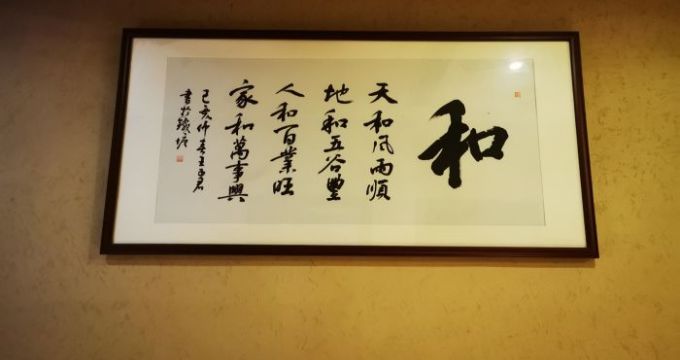 和
天和风雨順
地和五谷豐
人和百業旺
家和萬事興
己亥仲春王
書於